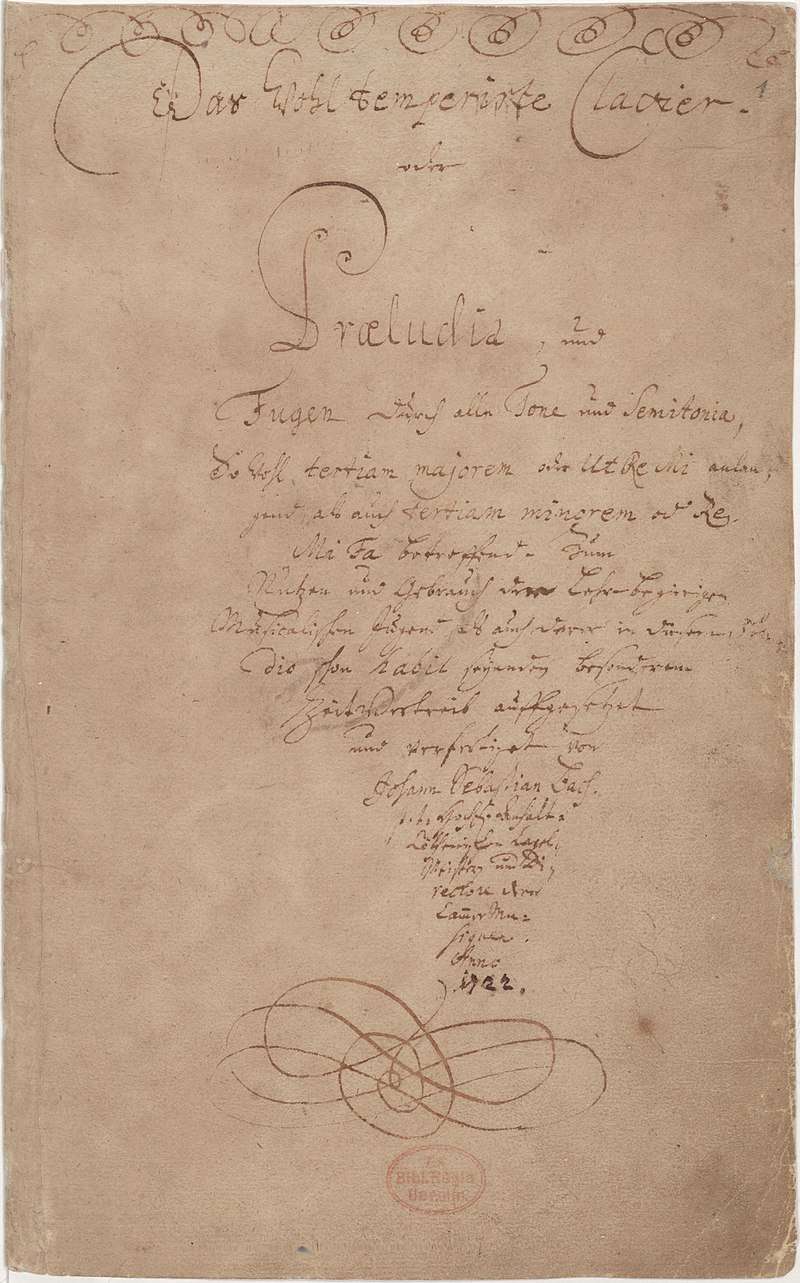 Das Wohltemperirte Clavier.
1
oder
Præludia, und
Fugen durch alle Tone und Semitonia,
So wohl tertiam majorem oder Ut Re Mi anlan,
gend, als auch tertiam minorem oder Re
Mi Fa betreffend. Zum
Nutzen und Gebrauch der Lehr-begierigen
Musicalischen Jugend als auch derer in diesem stu-
dio schon habil seyenden besonderem
Zeitvertreib auffgesetzet
und verfertiget von
Johann Sebastian Bach.
p. t. HochF. Anhalt-
Cöthenischen Capel-
Meistern und Di-
rectore derer
Camer Mu-
siquen.
Anno
1722.
Regia